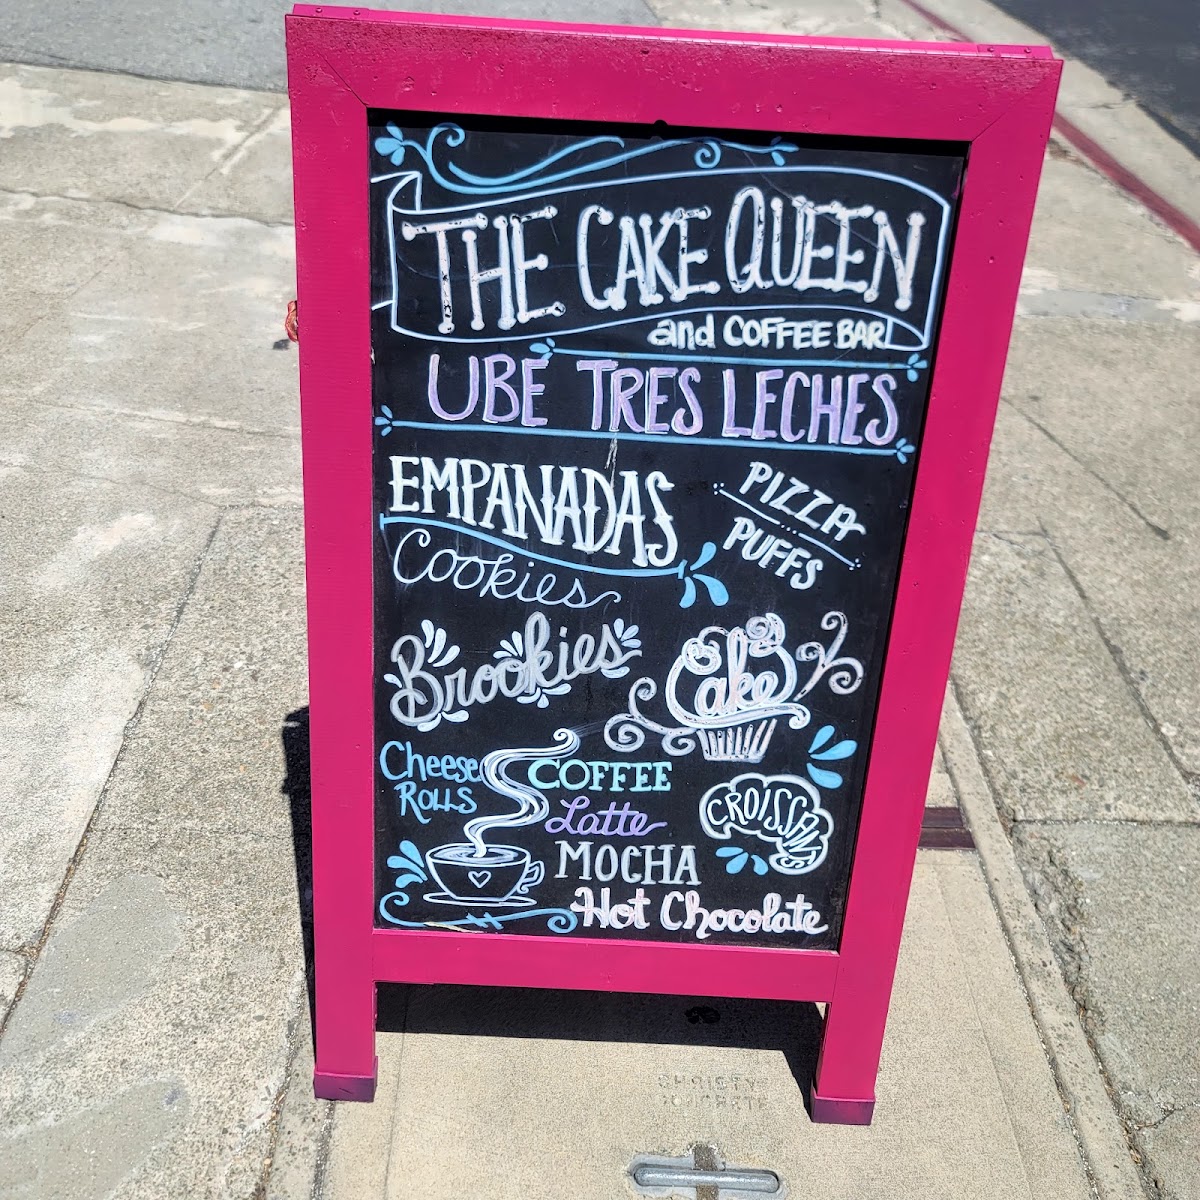 THE CAKE QUEEN
and COFFEE BAR
UBE TRES LECHES
EMPANADAS
PIZZA
PUFFS
Cookies
Brookies
Cake
Cheese
ROLLS
COFFEE
Latte
MOCHA
Hot Chocolate
CROISSANTS
CHRISTY
CONCRETE